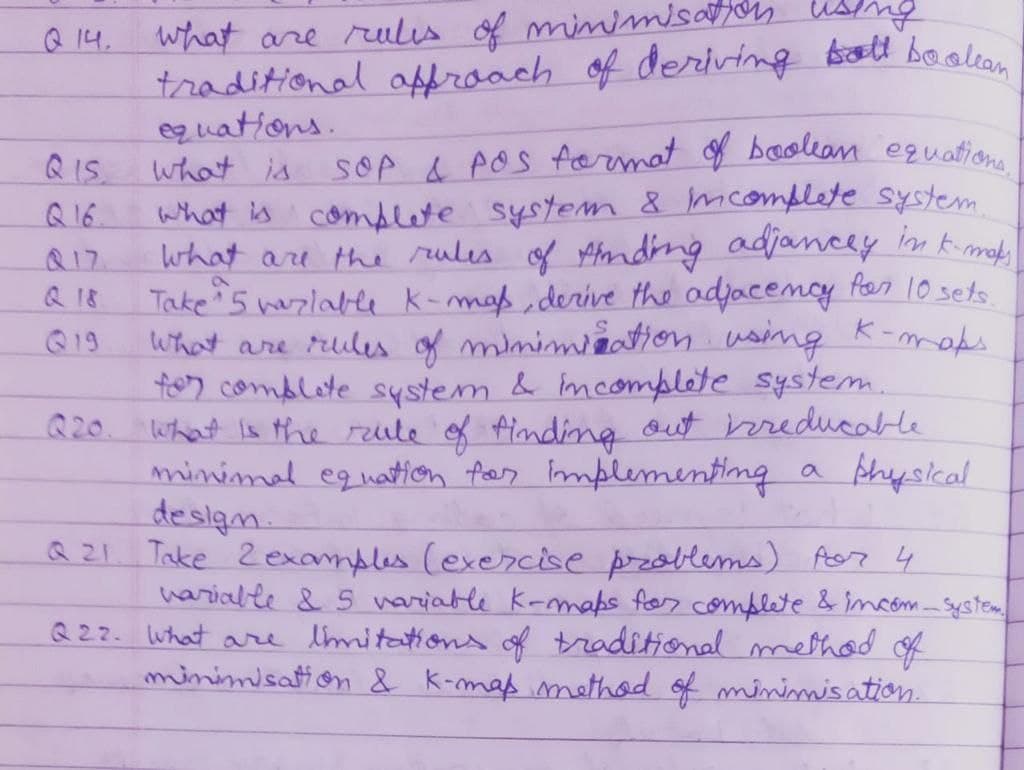 Q 14. What are rules of minimisation using
traditional approach of deriving boolean
equations.
Q 15 What is SOP & POS format of boolean equations.
Q16 What is complete system & incomplete system.
Q17 What are the rules of finding adjancey in K-maps
Q 18 Take a 5 variable K-map, derive the adjacency for 10 sets.
Q19 What are rules of minimisation using K-maps
for complete system & incomplete system.
Q20. What is the rule of finding out irreducable
minimal equation for implementing a physical
design.
Q 21. Take 2 examples (exercise problems) for 4
variable & 5 variable K-maps for complete & incom-system.
Q22. What are limitations of traditional method of
minimisation & K-map method of minimisation.